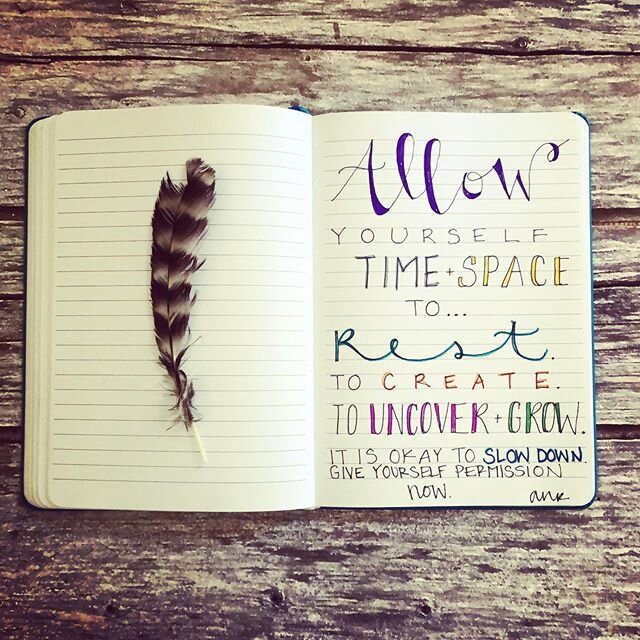 Allow
YOURSELF
TIME + SPACE
TO...
Rest.
TO CREATE.
TO UNCOVER + GROW.
IT IS OKAY TO SLOW DOWN.
GIVE YOURSELF PERMISSION
now.